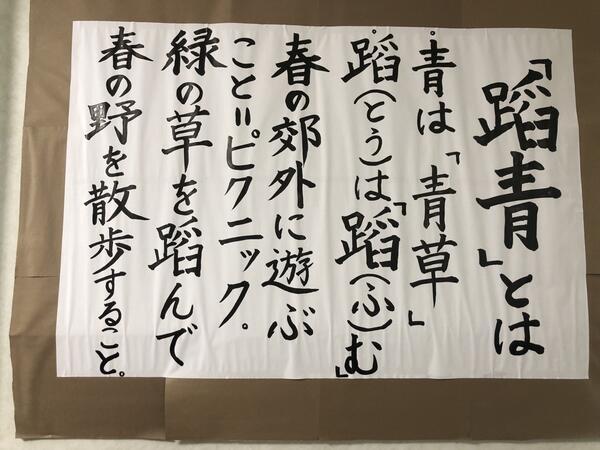 「蹈青」とは
・青は「青草」
・蹈(とう)は「蹈(ふ)む」
春の郊外に遊ぶ
こと=ピクニック。
緑の草を蹈んで
春の野を散歩すること。